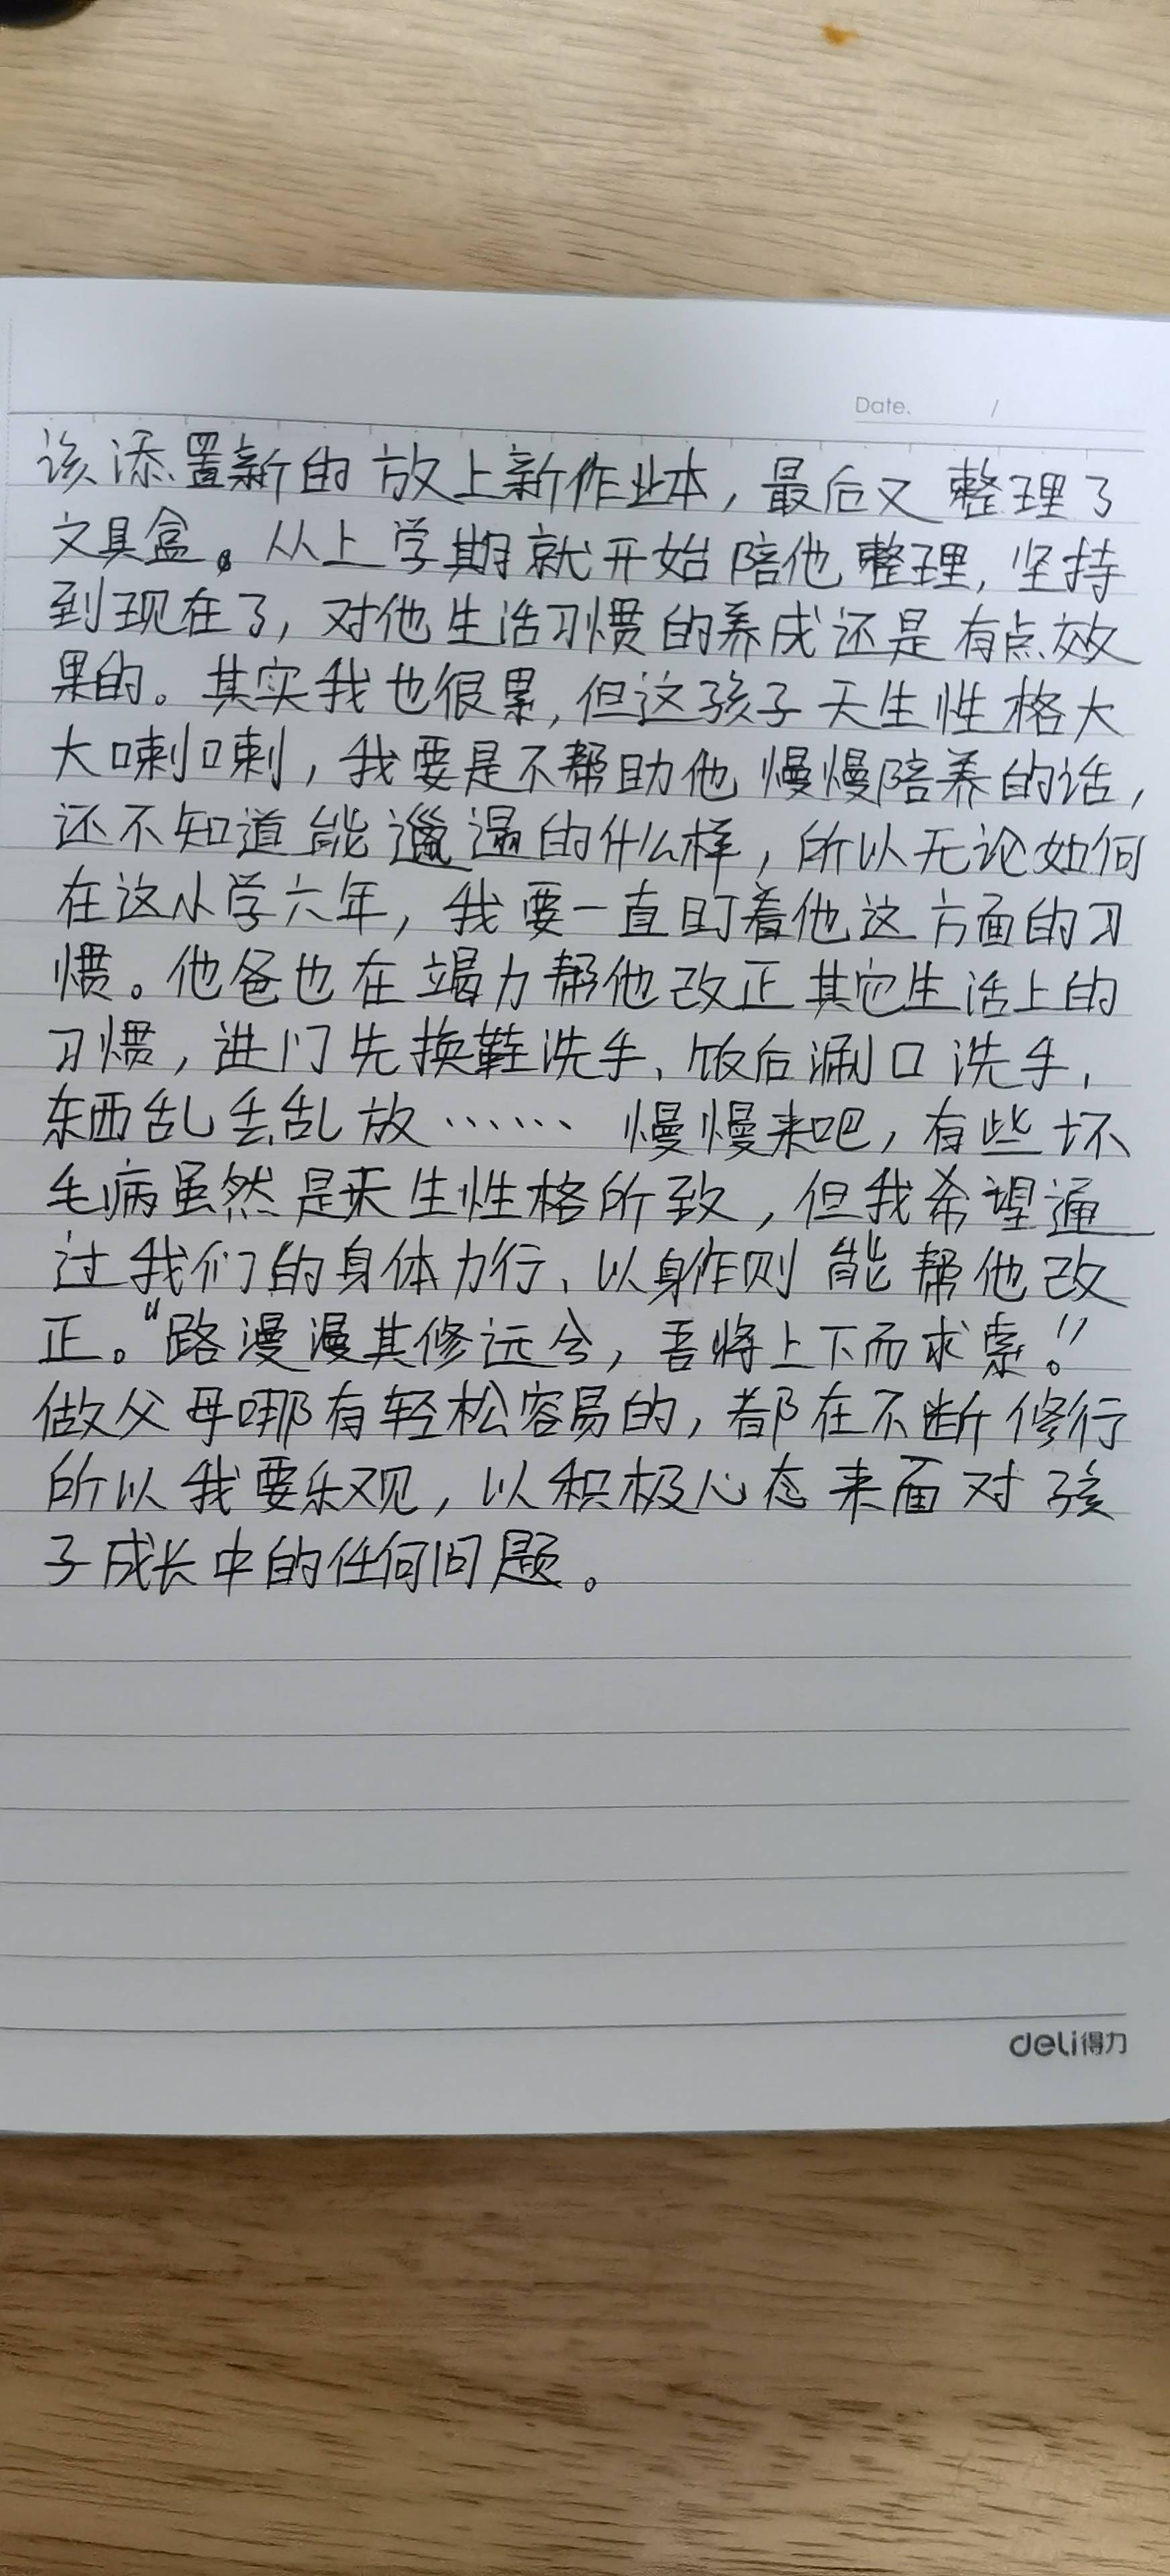 Date. /
该添置新的放上新作业本，最后又整理了
文具盒。从上学期就开始陪他整理，坚持
到现在了，对他生活习惯的养成还是有点效
果的。其实我也很累，但这孩子天生性格大
大喇喇，我要是不帮助他慢慢陪养的话，
还不知道能邋遢的什么样，所以无论如何
在这小学六年，我要一直盯着他这方面的习
惯。他爸也在竭力帮他改正其它生活上的
习惯，进门先换鞋洗手、饭后涮口洗手，
东西乱丢乱放……慢慢来吧，有些坏
毛病虽然是天生性格所致，但我希望通
过我们的身体力行、以身作则能帮他改
正。“路漫漫其修远兮，吾将上下而求索。”
做父母哪有轻松容易的，都在不断修行
所以我要乐观，以积极心态来面对孩
子成长中的任何问题。
deli得力